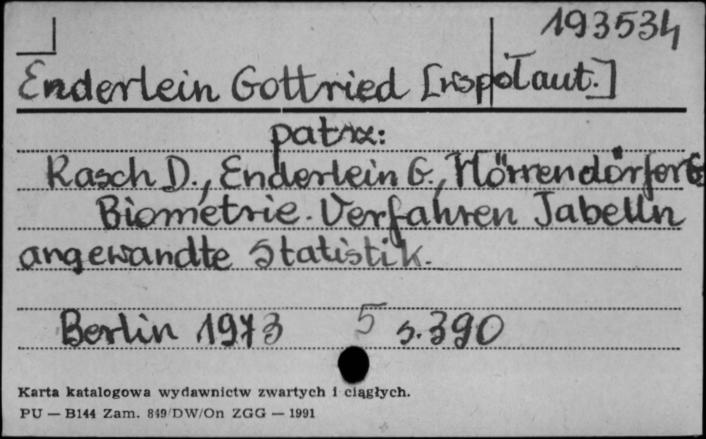 193534
Enderlein Gottried [współaut.]
patrz:
Rasch D., Enderlein G., Hörrendörfer G
Biometrie. Verfahren Tabelln
angewandte Statistik.
Berlin 1973 5 s. 390
Karta katalogowa wydawnictw zwartych i ciągłych.
PU — B144 Zam. 849/DW/On ZGG — 1991